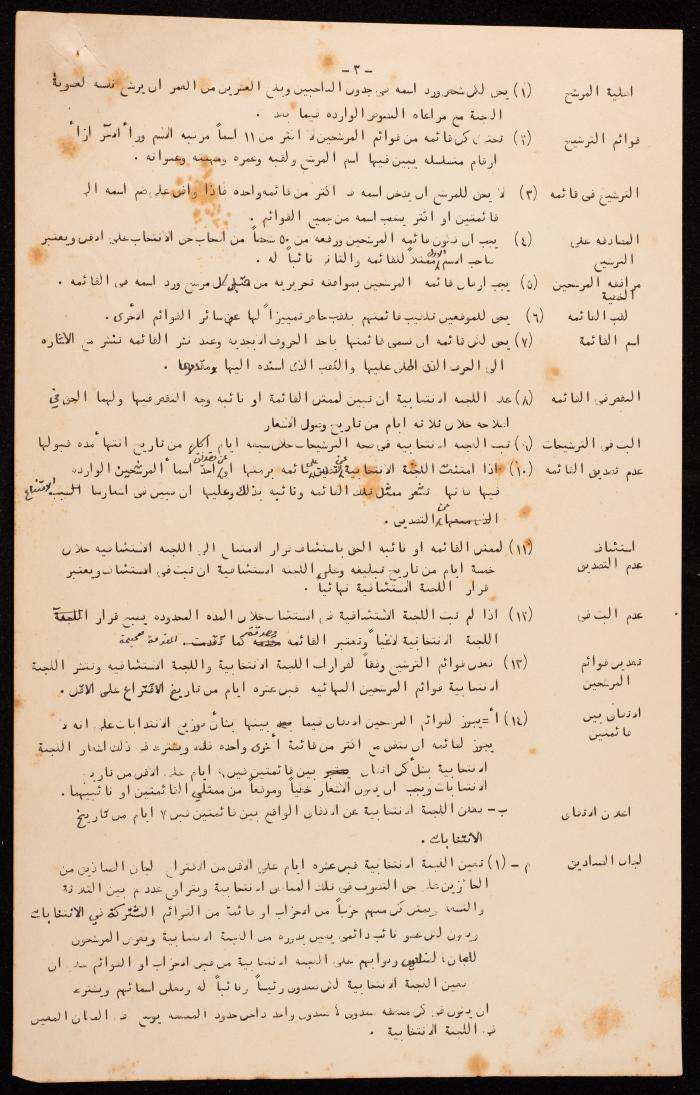 - ٣ -
اهلية المرشح (١) يحق لكل شخص ورد اسمه في جدول الناخبين وبلغ العشرين من العمر ان يرشح نفسه لعضوية
اللجنة مع مراعاة الشروط الواردة فيما بعد .
قوائم الترشيح (٢) تحتوي كل قائمة من قوائم المرشحين لا اكثر من ١١ اسماً مرتبة القسم وراء الآخر ازاء
ارقام متسلسلة يبين فيها اسم المرشح ولقبه وعمره ومهنته وعنوانه .
الترشيح في قائمة (٣) لا يحق للمرشح ان يدخل اسمه في اكثر من قائمة واحدة فاذا وافق على ضم اسمه الى
قائمتين او اكثر يشطب اسمه من جميع القوائم .
المصادقة على (٤) يجب ان تكون قائمة المرشحين ورقعة من ٥٠ شخصاً من اصحاب حق الانتخاب على الاقل ويعتبر
الترشيح صاحب الاسم الاول ممثلاً للقائمة والثاني نائباً له .
مرافقة المرشحين (٥) يجب ارسال قائمة المرشحين بموافقة تحريرية من قبل كل مرشح ورد اسمه في القائمة .
الخطية
لقب القائمة (٦) يحق للموقعين تلقيب قائمتهم بلقب خاص تمييزاً لها عن سائر القوائم الاخرى .
اسم القائمة (٧) يحق لكل قائمة ان تسمى قائمتها باحد الحروف الابجدية وعند نشر القائمة تنشر مع الاشارة
الى الحرف الذي اطلق عليها واللقب الذي اسند اليها .
النقص في القائمة (٨) على اللجنة الانتخابية ان تبين لممثل القائمة او نائبه وجه النقص فيها ولهما الحق في
اصلاحه خلال ثلاثة ايام من تاريخ وصول الاشعار
البت في الترشيحات (٩) تبت اللجنة الانتخابية في صحة الترشيحات خلال سبعة ايام من تاريخ انتهاء مدة قبولها
عدم تصديق القائمة (١٠) اذا امتنعت اللجنة الانتخابية عن تصديق القائمة برمتها او احد اسماء المرشحين الواردة
فيها فانها تشعر ممثل تلك القائمة ونائبه بذلك وعليها ان تبين في اشعارها السبب الامتناع
عن التصديق .
استئناف (١١) لممثل القائمة او نائبه الحق باستئناف قرار الامتناع الى اللجنة الاستئنافية خلال
عدم التصديق خمسة ايام من تاريخ تبليغه وعلى اللجنة الاستئنافية ان تبت في الاستئناف ويعتبر
قرار اللجنة الاستئنافية نهائياً .
عدم البت في (١٢) اذا لم تبت اللجنة الاستئنافية في الاستئناف خلال المدة المحدودة يصبح قرار اللجنة
اللجنة الانتخابية لاغياً وتعتبر القائمة مصدقة كما تقدمت . المقدمة صحيحة
تصديق قوائم (١٣) تعدل قوائم الترشيح وفقاً لقرارات اللجنة الانتخابية واللجنة الاستئنافية وتنشر اللجنة
المرشحين الانتخابية قوائم المرشحين النهائية قبل عشرة ايام من تاريخ الاقتراع على الاقل .
ائتلاف بين (١٤) أ = يجوز لقوائم المرشحين ائتلاف فيما بينها بشأن توزيع الانتدابات على انه لا
قائمتين يجوز لقائمة ان تتفق مع اكثر من قائمة أخرى واحدة فقط ويشترط في ذلك اشعار اللجنة
الانتخابية بكل ائتلاف بين قائمتين قبل ١٠ ايام على الاقل من تاريخ
الانتخابات ويجب ان يكون الاشعار خطياً وموقعاً من ممثلي القائمتين او نائبيهما .
اعلان الائتلاف ب - تعلن اللجنة الانتخابية عن الائتلاف الواقع بين قائمتين قبل ٧ ايام من تاريخ
الانتخابات .
لجان الصناديق م - (١) تعين اللجنة الانتخابية قبل عشرة ايام على الاقل من الاقتراع لجان الصناديق من
الحائزين على حق التصويت في تلك المناطق الانتخابية ويتراوح عددهم بين الثلاثة
والتسعة ويمثل كل منهم حزباً من الاحزاب او قائمة من القوائم المشتركة في الانتخابات
ويكون لكل عضو نائب دائمي يعين بدوره من اللجنة الانتخابية ويعرض المرشحون
للجان ونوابهم على اللجنة الانتخابية من قبل الاحزاب او القوائم على ان
تعين اللجنة الانتخابية لكل صندوق رئيساً ونائباً له وتعلن اسمائهم ويشترط
ان يكون في كل منطقة صندوق لا صندوق واحد داخل حدود المنطقة يوضع في المكان المعين
من اللجنة الانتخابية .